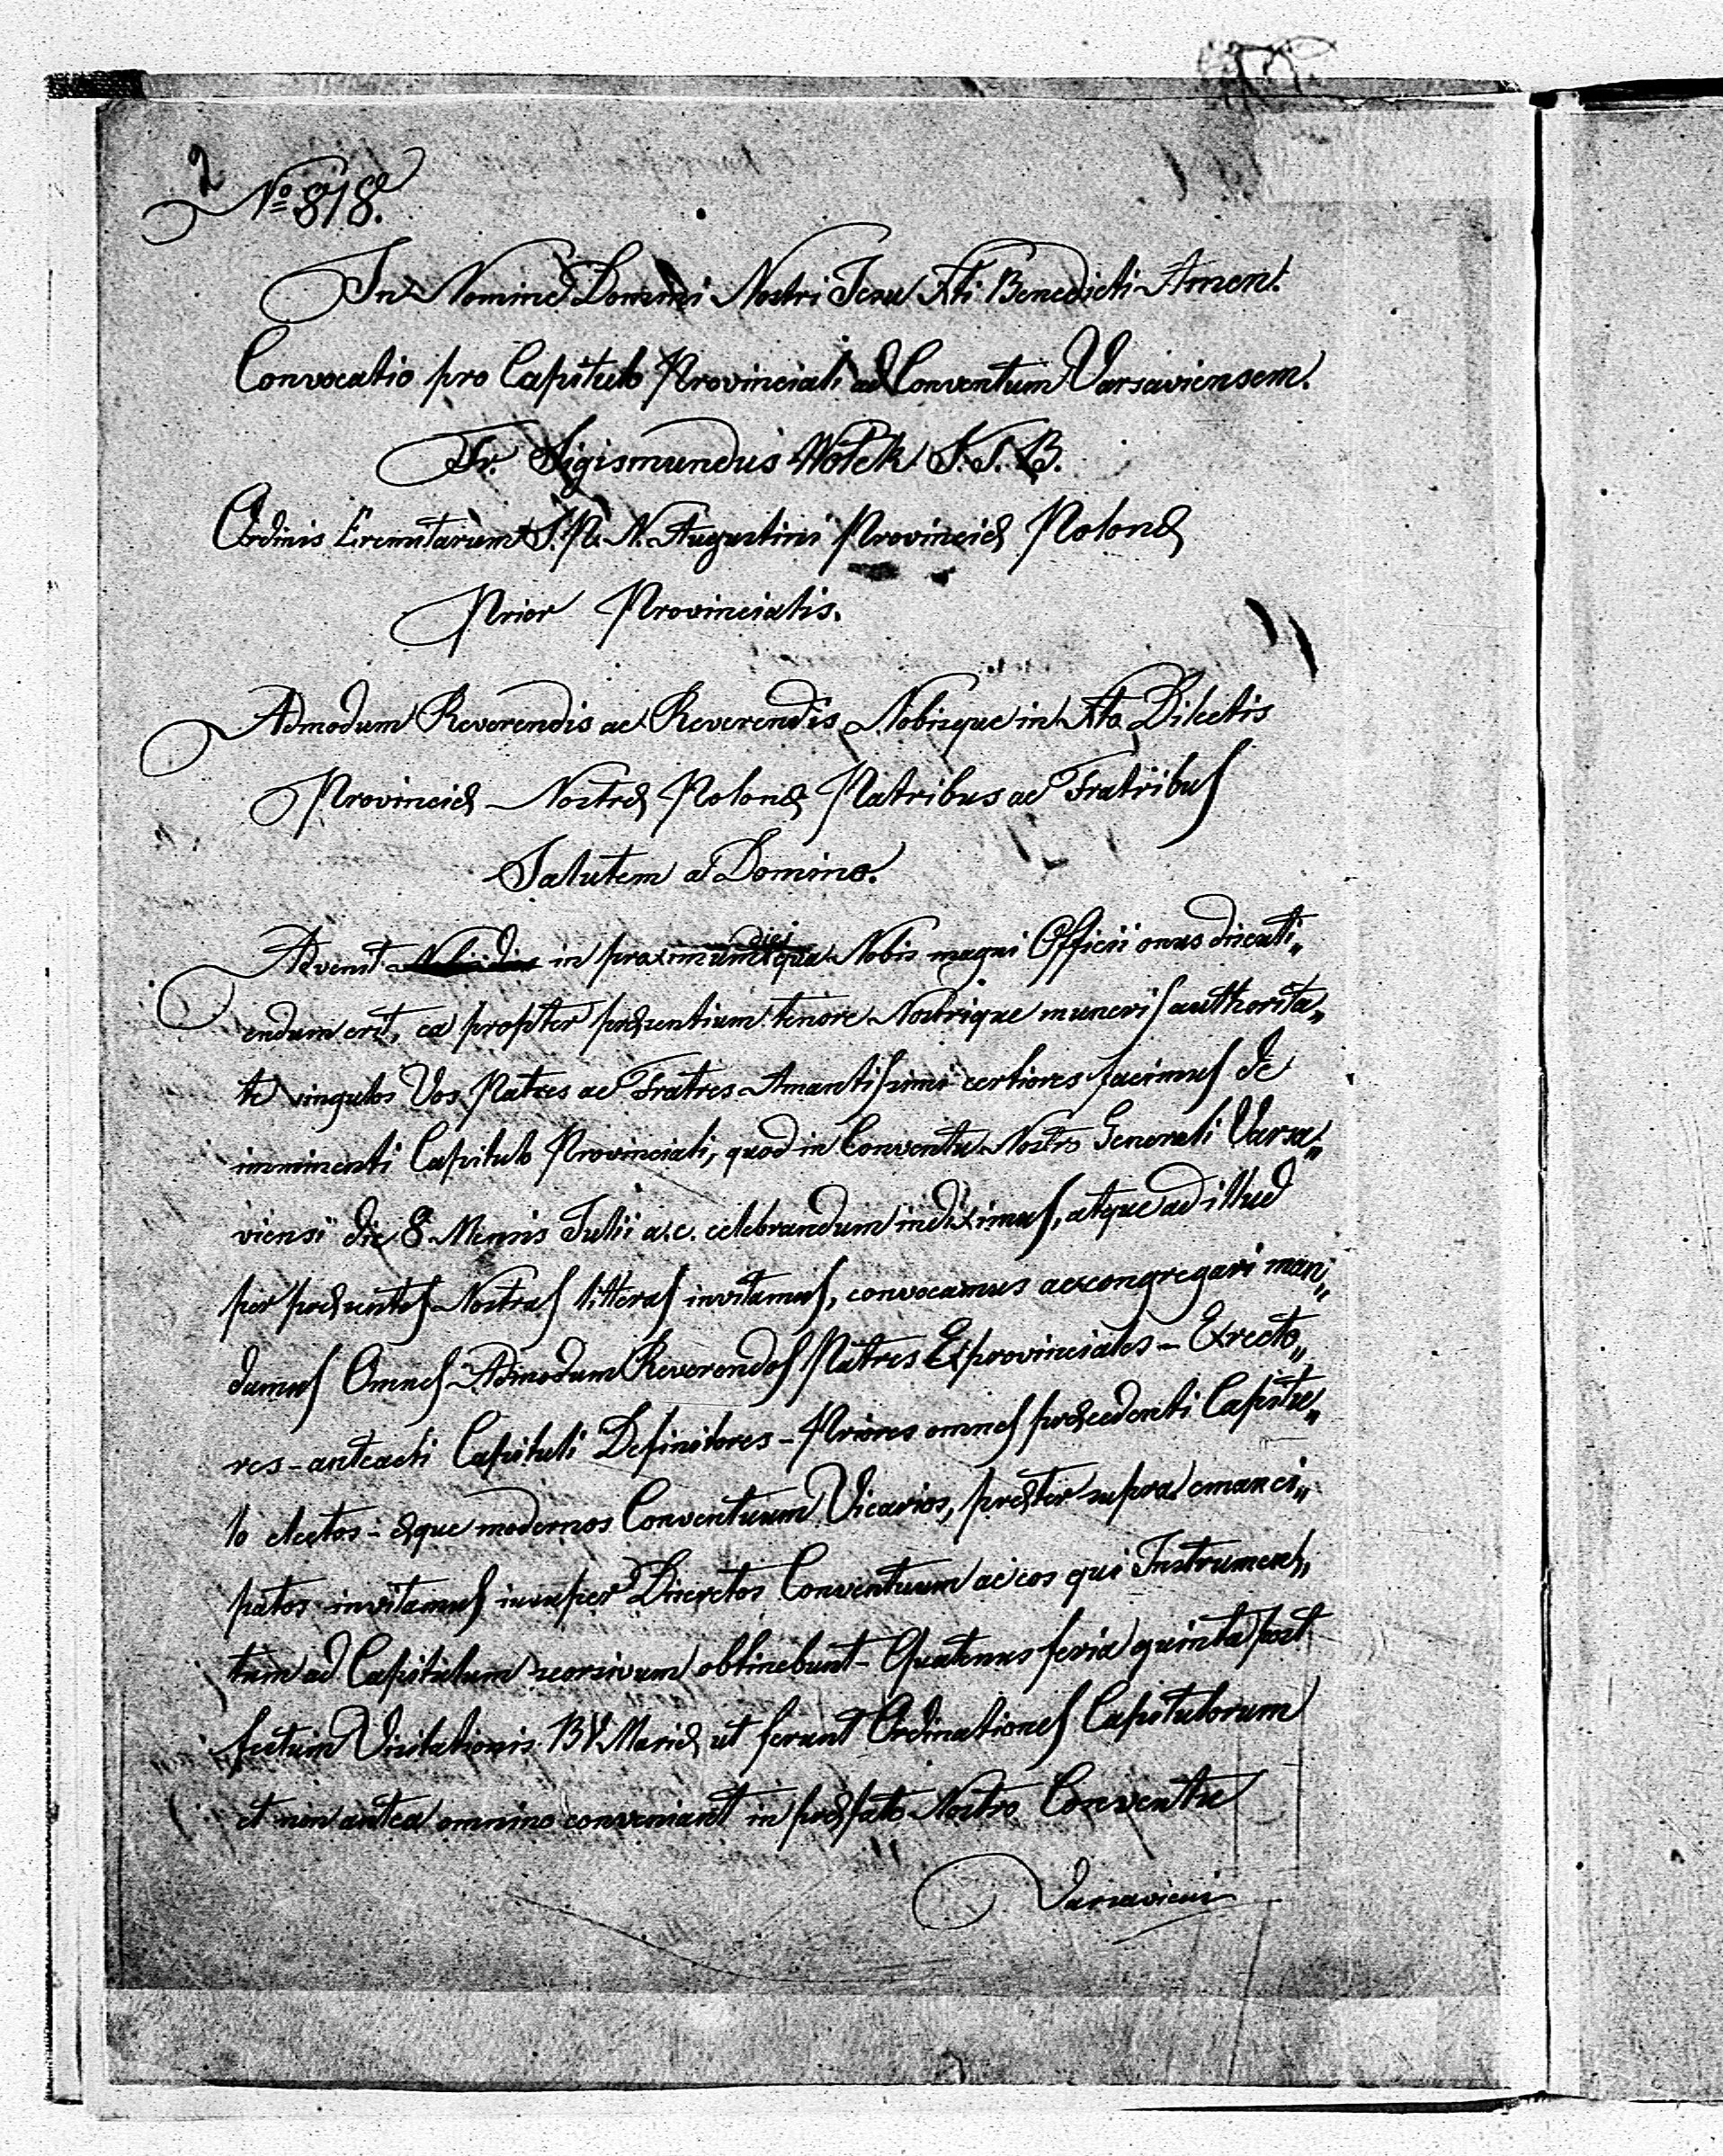 2
№ 818.
In Nomine Domini Nostri Jesu Xti Benedicti Amen.
Convocatio pro Capitulo Provinciali ad Conventum Varsaviensem.
Fr. Sigismundus Wołek S.T.B.
Ordinis Eremitarum S.P.N. Augustini Provinciæ Polonæ
Prior Provincialis.
Admodum Reverendis ac Reverendis Nobisque in Xto Dilectis
Provinciæ Nostræ Polonæ Patribus ac Fratribus
Salutem a Domino.
Advenit in proximum qua Nobis magni Officii onus discuti„
endum erit, ea propter præsentium tenore Nostrique muneris authorita„
te singulos Vos Patres ac Fratres Amantissimi certiores facimus de
imminenti Capitulo Provinciali, quod in Conventu Nostro Generali Varsa„
viensi die 8 Mensis Julii a.c. celebrandum indiximus, atque ad illud
per præsentes Nostras litteras invitamus, convocamus ac congregari man„
damus Omnes Admodum Reverendos Patres Exprovinciales - Exrecto„
res - anteacti Capituli Definitores - Priores omnes præcedenti Capitu„
lo electos - æque modernos Conventuum Vicarios, præter supra emanci„
patos invitamus insuper Discretos Conventuum ac eos qui Instrumen„
tum ad Capitulum seorsivum obtinebunt - Quatenus feria quinta post
festum Visitationis BV Mariæ ut ferunt Ordinationes Capitulorum
et non antea omnino conveniant in præfato Nostro Conventu
Varsaviensi